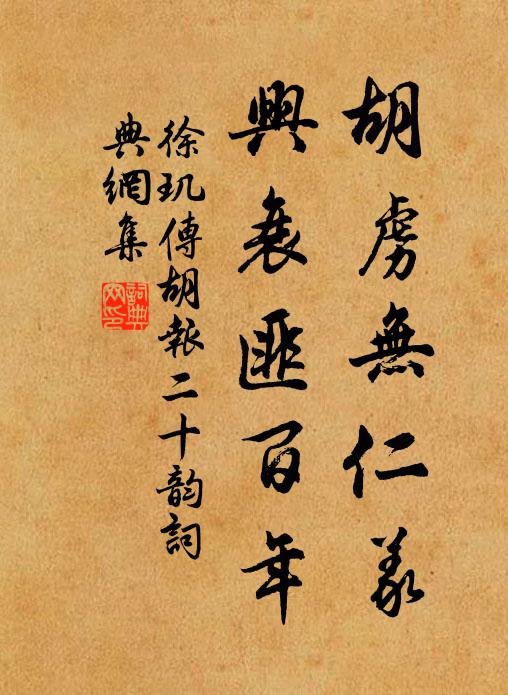 胡虜無仁義
興衰匪百年
徐玑傳胡報二十韵詞
典網集
詞典網印